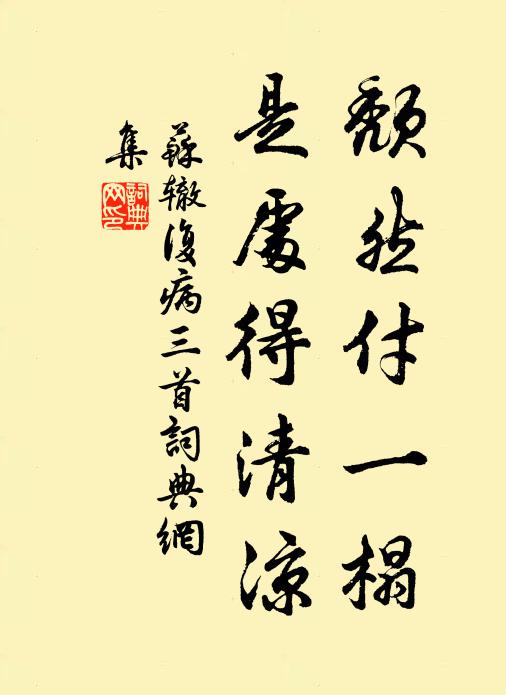 頹然付一榻
是處得清涼
蘇轍復病三首詞典網
集
詞典
网印